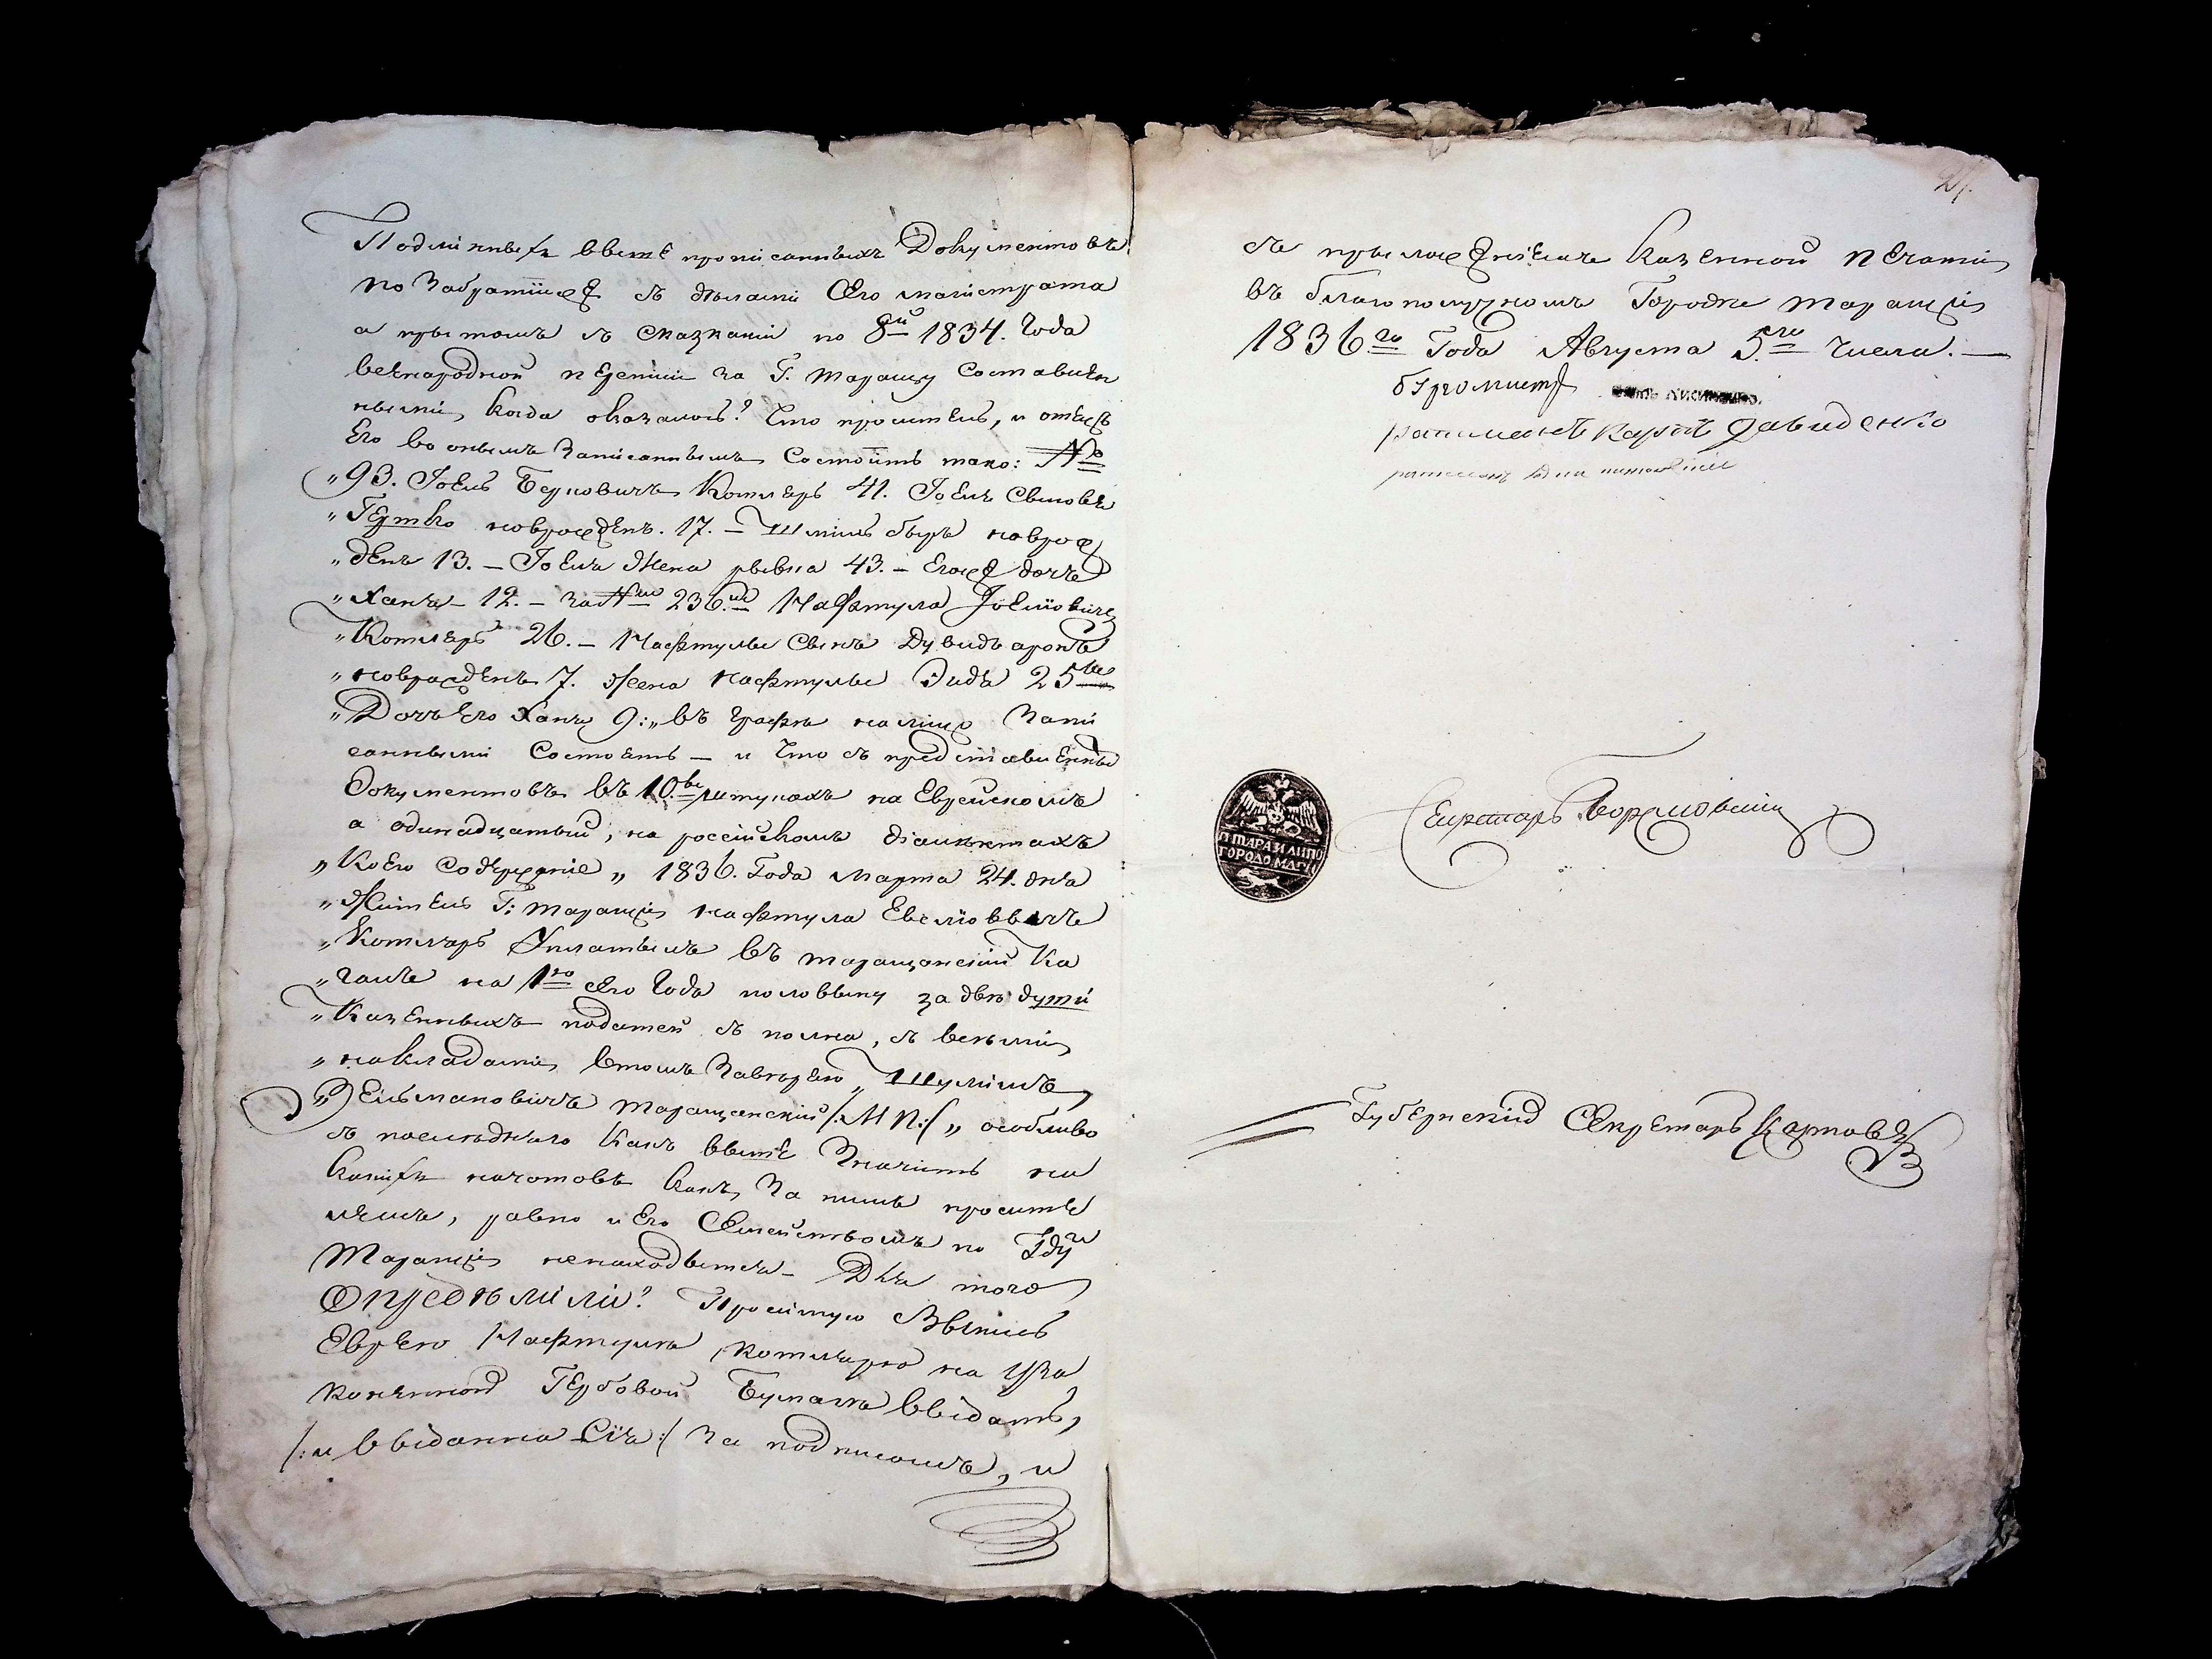 Подлинныхъ выше прописанныхъ Документовъ
по Забратіи съ дѣлами Сего магистрата
а притомъ съ сказками по 8й 1834. Года
всенародной переписи за Г. Таращу Составлен
ными, когда оказалось? Что проситель, и отецъ
Его во онымъ Записаннымъ Состоитъ тако: №
„93. Іоель Берковичъ Котляръ 41. Іоеля Сыновъя
„Гершко новрожденъ. 17. — Шмиль беръ новрож
„денъ 13. — Іоеля Жена рывка 43. — Егожъ дочъ
„Хана — 12. — за №м 236.м Нафтула Іоеліовичъ
„Котляръ 26. — Нафтулы Сынъ Дувидъ аронъ
„новрожденъ 7. Жена Нафтулы Эидя 25
„Дочъ Его Хана 9:„ въ графѣ на лицо Запи
санными Состоятъ — и Что съ представленныхъ
Документовъ въ 10. штукахъ на Еврейскомъ
а одинадцатый, на россійскомъ діалектахъ
„Коего Содержаніе „ 1836. Года Марта 24. дня
„Житель Г: Таращи Нафтула Евеліоввичъ
„Котляръ Уплатылъ въ Таращанскій Ка
„галъ на 1ю сего Года половыну за двѣ души
„Казенныхъ податей съ полна, съ всѣми
„накладами, втомъ Завѣряю „ Шулимъ
„Зельмановичъ Таращанскій /:М П:/ „ особливо
съ послѣдняго Какъ выше Значитъ ни
какихъ начотовъ какъ, За нимъ просите
лемъ, равно и Его Семействомъ по Гду
Таращи ненаходытся — Для того
Опредѣлили? Просимую Выпись
Еврею Нафтулѣ Котляру на Уза
коненной Гербовой Бумагѣ выдать,
/:и выданна Сія:/ За подписомъ, и
съ приложеніемъ Казенной печати,
въ благополучномъ Городѣ Таращи,
1836.го Года Августа 5.го Числа. —
бургомистръ
ратманъ Карпъ Давиденко
ратманъ
Г. ТАРА
ГОРОДО. МАГИ
Секретарь
Губернскій Секретарь Карповъ